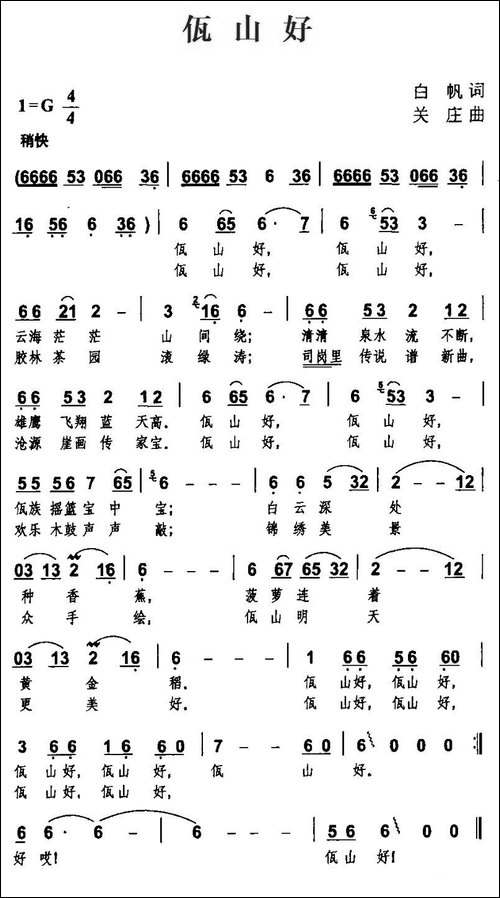 佤山好
白帆词
1=G 4/4
关庄曲
稍快
(6666 53 066 36 | 6666 53 6 36 | 6666 53 066 36
16 56 6 36) | 6 65 6· 7 | 6 53 3 - |
佤山好, 佤山好,
佤山好, 佤山好,
66 21 2 - | 3 2 16 6 - | 66 53 2 12 |
云海茫茫 山间绕; 清清泉水流不断,
胶林茶园 滚绿涛; 司岗里传说谱新曲,
66 53 2 12 | 6 65 6· 7 | 6 53 3 - |
雄鹰飞翔蓝天高。佤山好, 佤山好,
沧源崖画传家宝。佤山好, 佤山好,
55 56 7 65 | 5 6 - - - | 6 6 5 32 | 2 - - 12 |
佤族摇篮宝中宝; 白云深处
欢乐木鼓声声敲; 锦绣美景
03 13 2 16 | 6 - - - | 6 67 65 32 | 2 - - 12 |
种香蕉, 菠萝连着
众手绘, 佤山明天
03 13 2 16 | 6 - - - | 1 66 56 60 |
黄金稻。 佤山好, 佤山好,
更美好。 佤山好, 佤山好,
3 66 16 60 | 7 - - 60 | 6 0 0 0 :‖
佤山好, 佤山好, 佤山好。
佤山好, 佤山好,
6 6· 6 6 - | 6 - - - | 56 6 0 0 ‖
好哎! 佤山好!